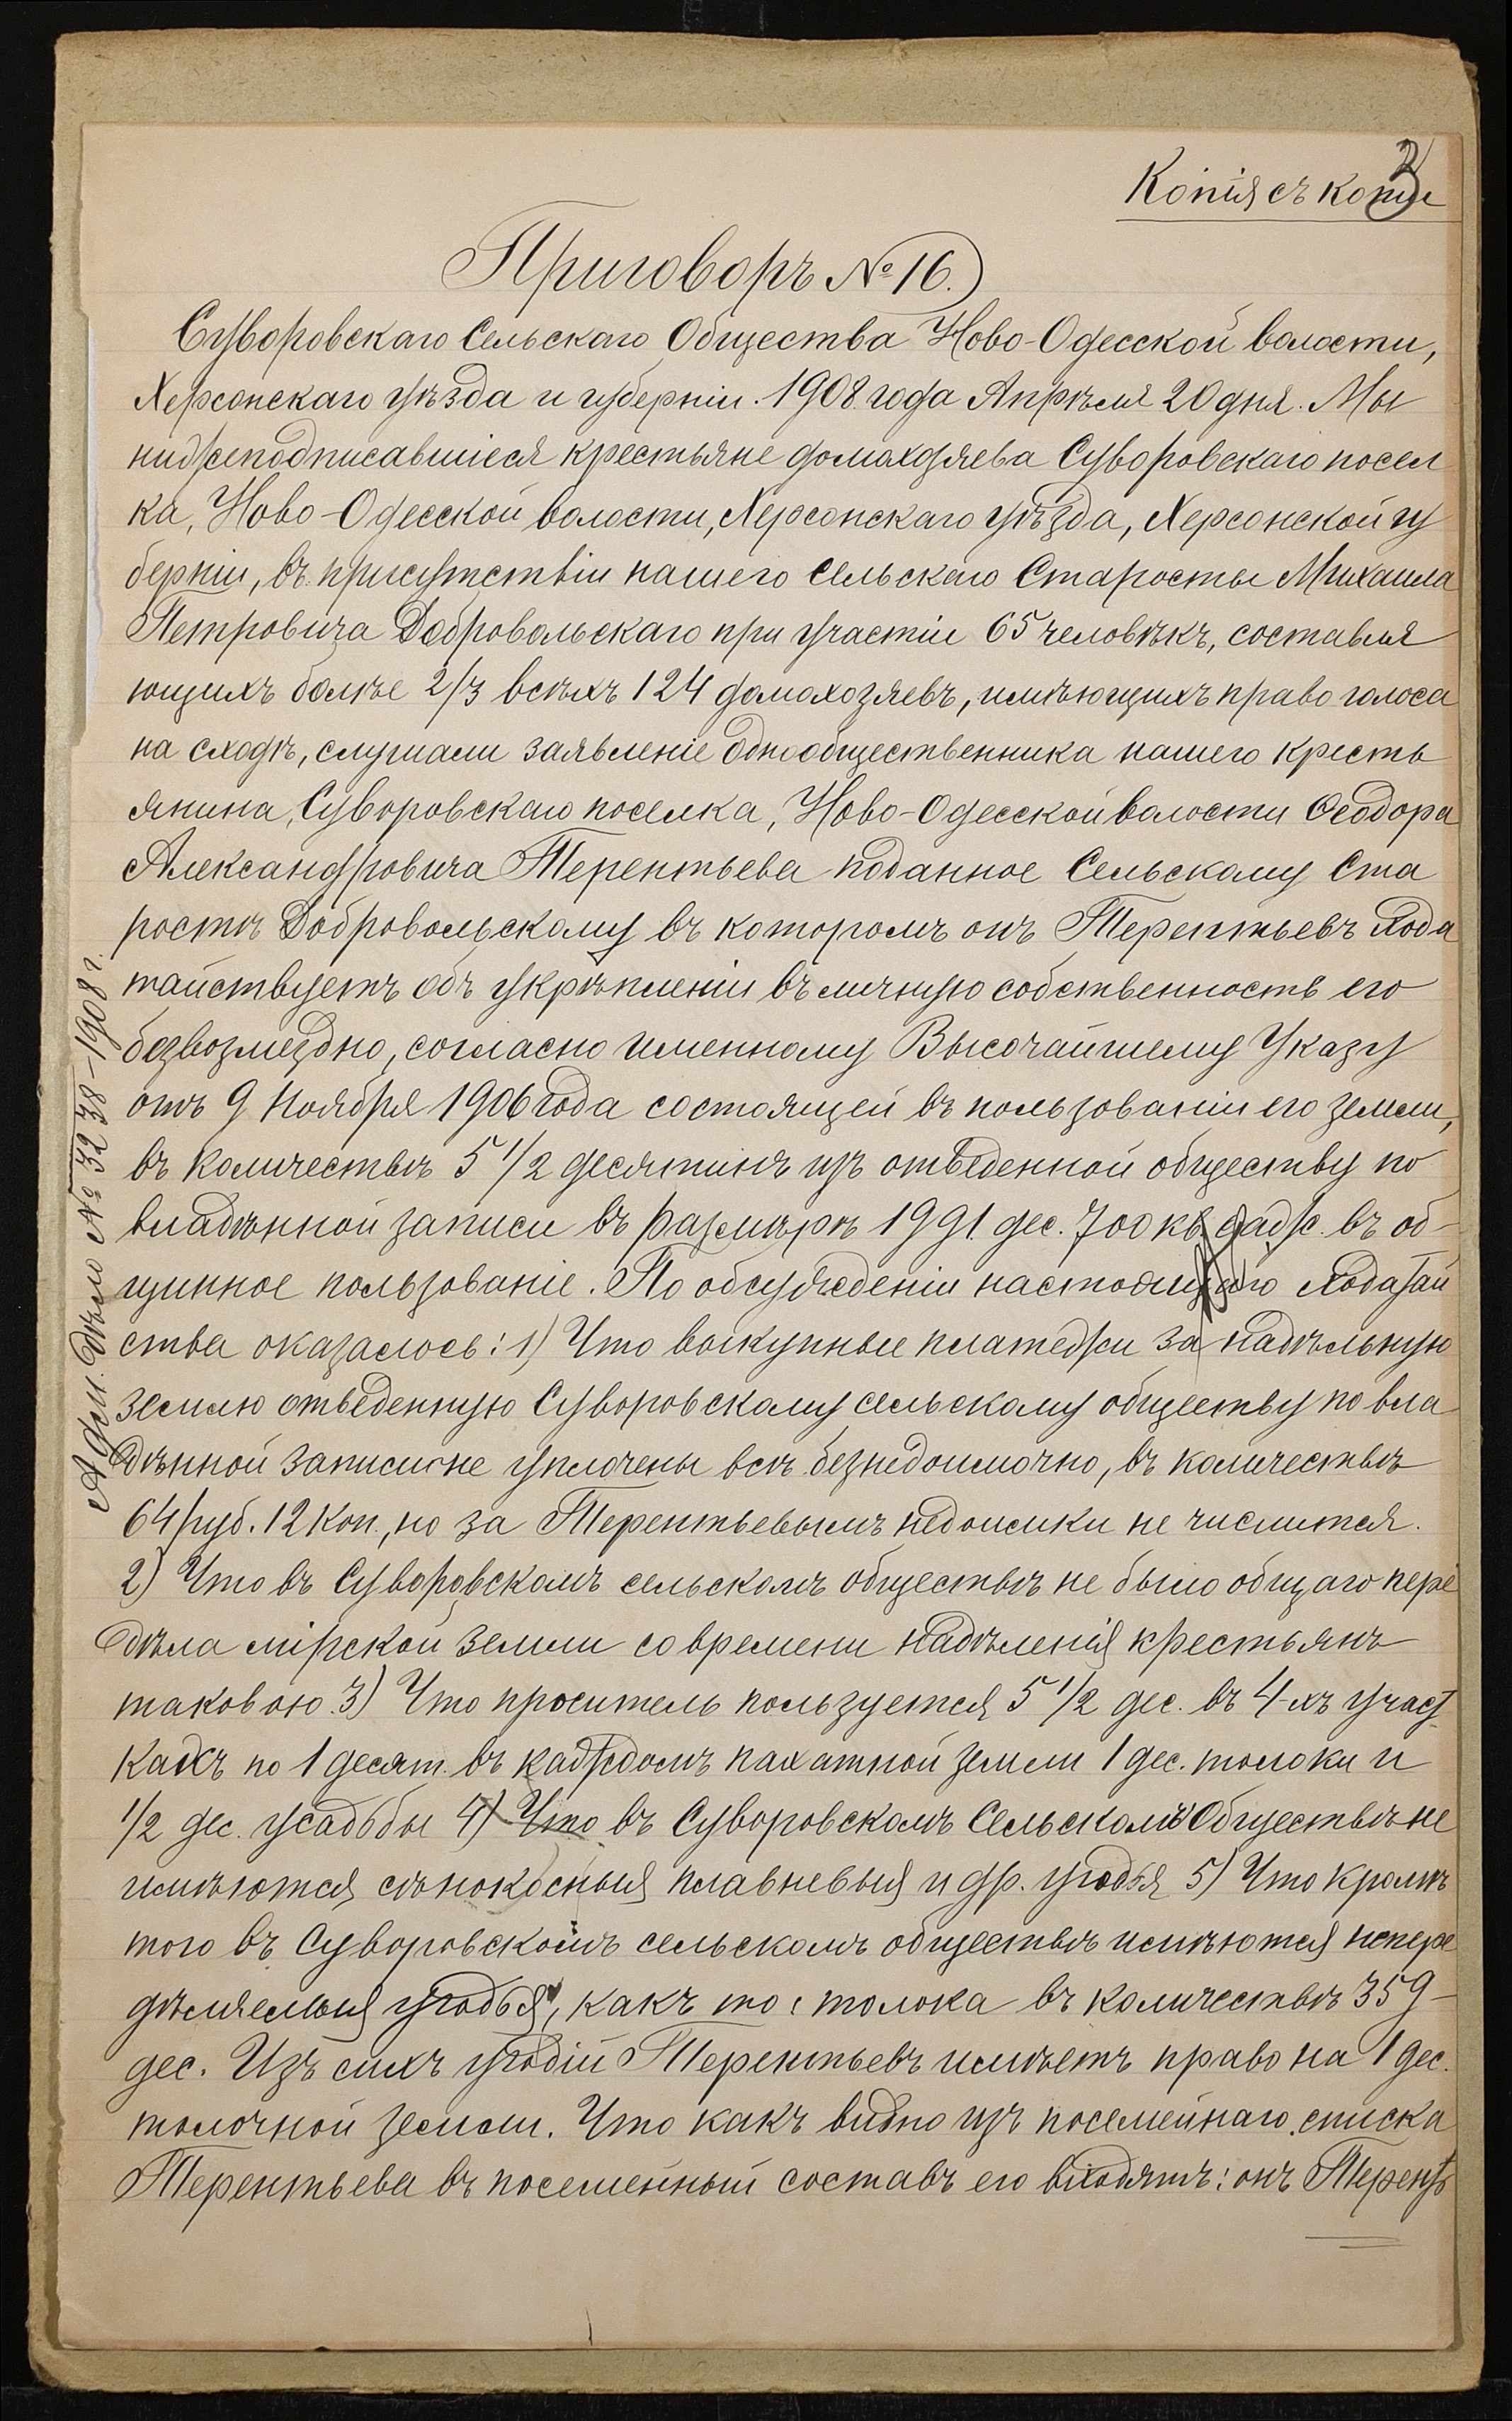 3
Копія съ копіи
Приговоръ № 16.
Суворовскаго Сельскаго Общества Ново-Одесской волости,
Херсонскаго уѣзда и губерніи. 1908 года Апрѣля 20 дня. Мы
нижеподписавшіеся крестьяне домохозяева Суворовскаго посел
ка, Ново-Одесской волости, Херсонскаго уѣзда, Херсонской гу
берніи, въ присутствіи нашего Сельскаго Старосты Михаила
Петровича Добровольскаго при участіи 65 человѣкъ, составля
ющихъ болѣе 2/3 всѣхъ 124 домохозяевъ, имѣющихъ право голоса
на сходѣ, слушали заявленіе одно общественника нашего кресть
янина, Суворовскаго поселка, Ново-Одесской волости Ѳеодора
Александровича Терентьева поданное Сельскому Ста
ростѣ Добровольскому въ которомъ онъ Терентьевъ хода
тайствуетъ объ укрѣпленіи въ личную собственность его
безвозмездно, согласно именному Высочайшему Указу
отъ 9 Ноября 1906 года состоящей въ пользованіи его земли,
въ количествѣ 5 1/2 десятинъ изъ отведенной обществу по
владѣнной записи въ размѣрѣ 1991 дес. 700 кв. саж. въ об-
щинное пользованіе. По обсужденіи настоящаго ходатай
ства оказалось: 1) Что выкупные платежи за надѣльную
землю отведенную Суворовскому сельскому обществу по вла
дѣнной записи не уплочены всѣ безнедоимочно, въ количествѣ
64 руб. 12 коп., но за Терентьевымъ недоимки не числится.
2) Что въ Суворовскомъ сельскомъ обществѣ не было общаго пере
дѣла мірской земли со времени надѣленія крестьянъ
таковою. 3) Что проситель пользуется 5 1/2 дес. въ 4-хъ участ
кахъ по 1 десят. въ каждомъ пахатной земли 1 дес. толоки и
1/2 дес. усадьбы 4) Что въ Суворовскомъ Сельскомъ Обществѣ не
имѣются сѣнокосныя плавневыя и др. угодья 5) Что кромѣ
того въ Суворовскомъ сельскомъ обществѣ имѣются непере
дѣляемыя угодья, какъ то: толока въ количествѣ 359-
дес. Изъ сихъ угодій Терентьевъ имѣетъ право на 1 дес.
толочной земли. Что какъ видно изъ посемейнаго списка
Терентьева въ посемейный составъ его входятъ: онъ Терентъ
Адм. Дѣло № 3238-1908 г.